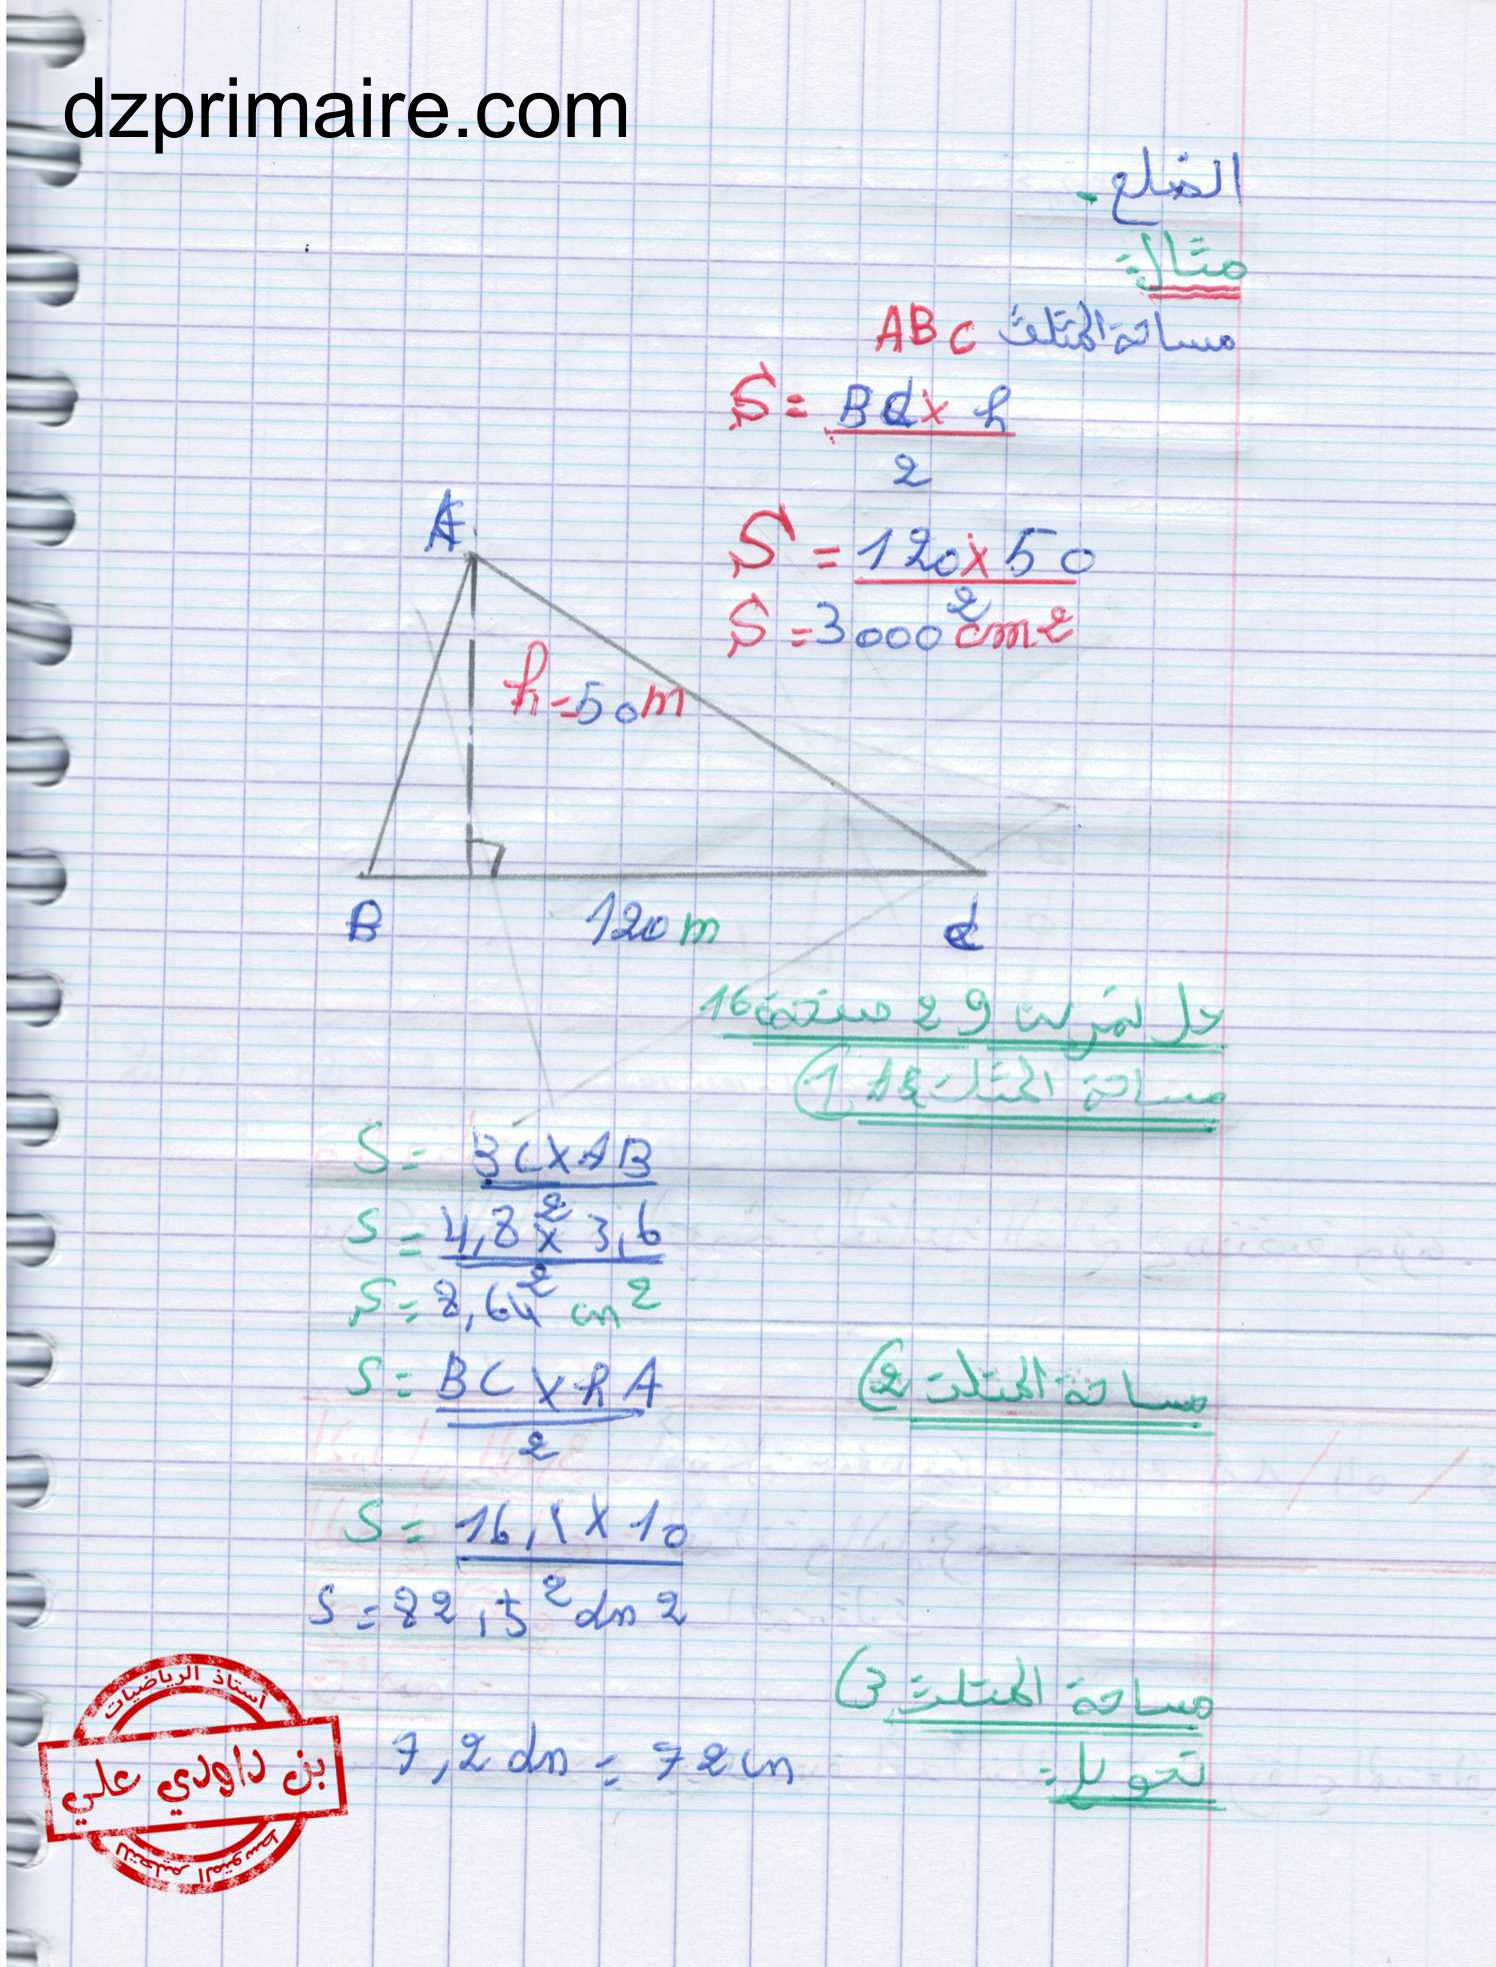 dzprimaire.com
الضلع.
مثال:
مساحة المثلث ABC
S = BC × h
2
S = 120 × 50
2
S = 3000 cm2
A
h = 50m
B 120 m C
حل تمرين 29 صفحة 16
مساحة المثلث 1)
S = BC × AB
2
S = 4,8 × 3,6
2
S = 8,64 cm2
مساحة المثلث 2)
S = BC × hA
2
S = 16,5 × 10
2
S = 82,5 dm2
مساحة المثلث 3)
تحويل:
7,2 dm = 72 cm
أستاذ الرياضيات
بن داودي علي
للتعليم المتوسط